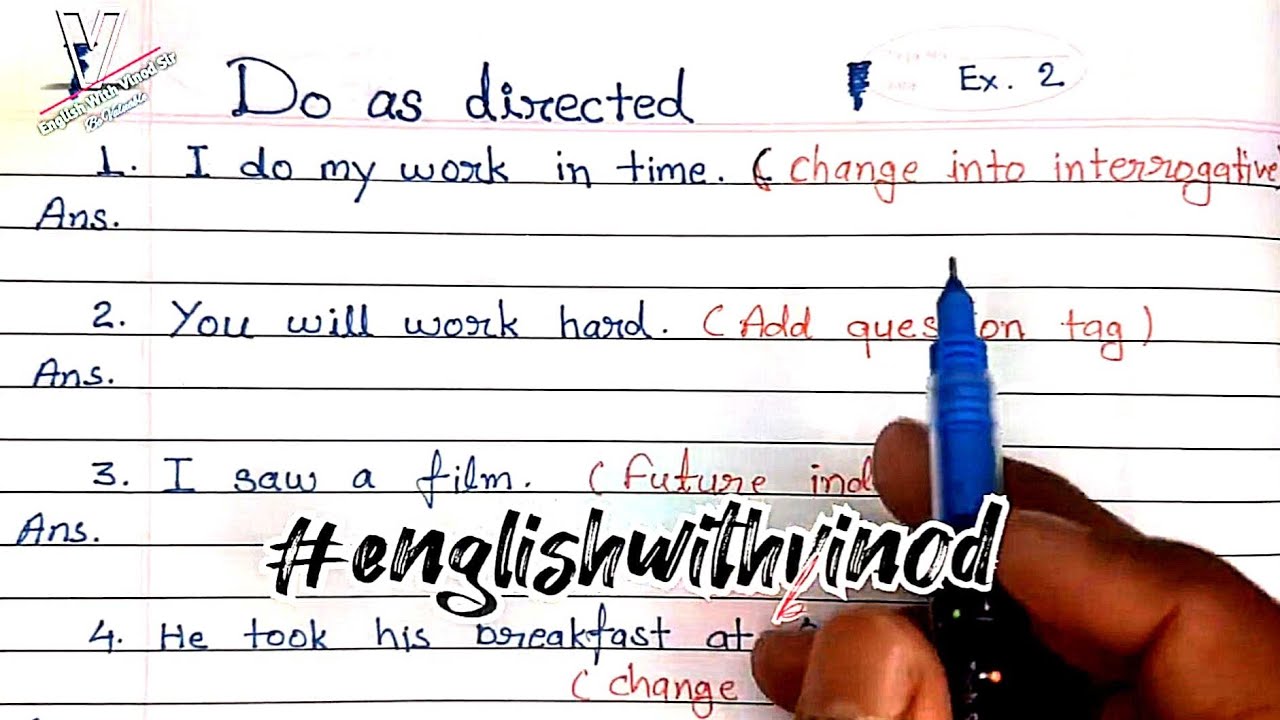 English With Vinod Sir
Do as directed
Ex. 2
1. I do my work in time. ( change into interrogative
Ans.
2. You will work hard. ( Add question tag )
Ans.
3. I saw a film. ( future
Ans.
#englishwithvinod
4. He took his breakfast at
( change